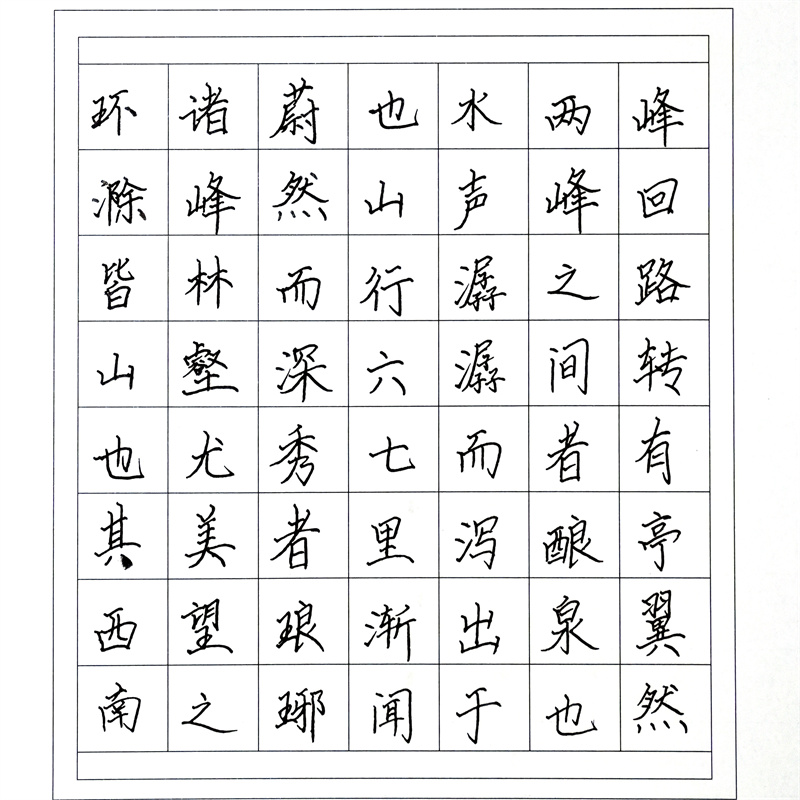 环滁皆山也其西南
诸峰林壑尤美望之
蔚然而深秀者琅琊
也山行六七里渐闻
水声潺潺而泻出于
两峰之间者酿泉也
峰回路转有亭翼然